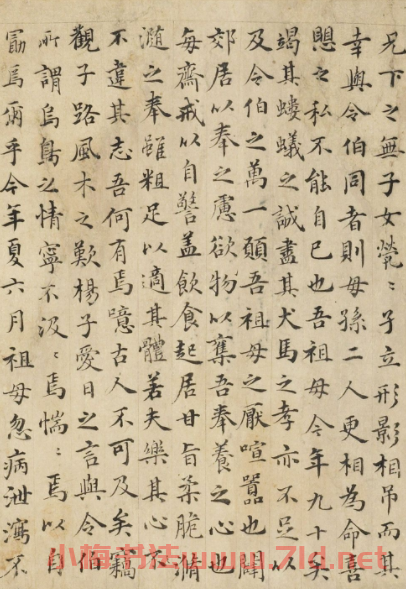 兄下之無子女煢〻孑立形影相吊而其
幸與令伯同者則母孫二人更相為命喜
懸之私不能自已也吾祖母今年九十矣
竭其螻蟻之誠盡其犬馬之孝亦不足以
及令伯之萬一顧吾祖母之厭喧囂也闢
郊居以奉之慮欲物以奪吾奉養之心也
每齋戒以自警蓋飲食起居甘旨柔脆滫
瀡之奉雖粗足以適其體若夫樂其心不
不違其志吾何有焉噫古人不可及矣竊
觀子路風木之歎楊子愛日之言與令伯
所謂烏鳥之情寧不汲〻焉惴〻焉以自
勗焉爾乎今年夏六月祖母忽病泄瀉不
小梅书法:www.7ld.net